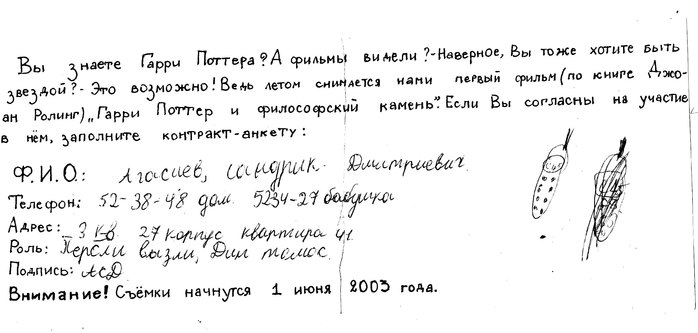 Вы знаете Гарри Поттера? А фильмы видели?-Наверное, Вы тоже хотите быть
звездой?- Это возможно! Ведь летом снимается нами первый фильм (по книге Джо-
ан Ролинг) „Гарри Поттер и философский камень". Если Вы согласны на участие
в нём, заполните контракт-анкету:
Ф.И.О.: Агасиев, Сандрик. Дмитриевич.
Телефон: 52-38-48 дом. 5234-27 бабушка
Адрес: 3 кв 27 корпус квартира 41.
Роль: Перси визли, Дин томас.
Подпись: АСД
Внимание! Съёмки начнутся 1 июня 2003 года.